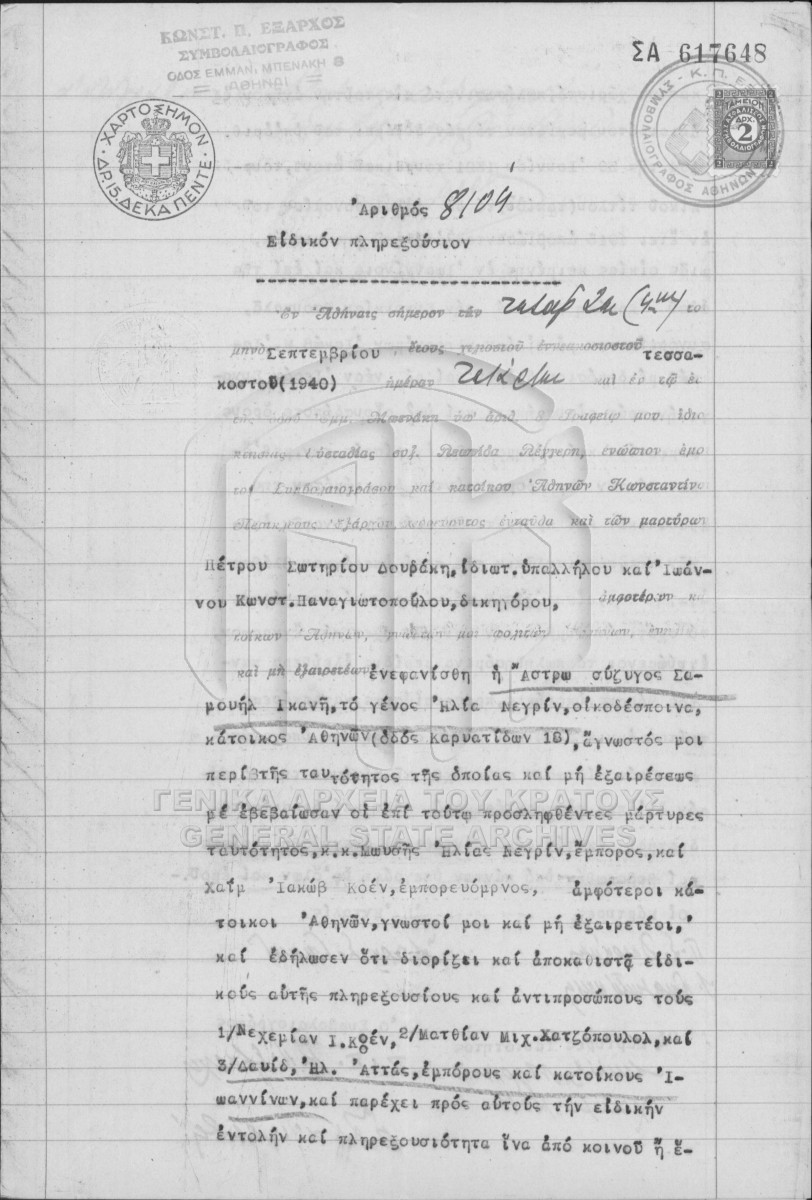 ΚΩΝΣΤ. Π. ΕΞΑΡΧΟΣ
ΣΥΜΒΟΛΑΙΟΓΡΑΦΟΣ
ΟΔΟΣ ΕΜΜΑΝ. ΜΠΕΝΑΚΗ 8
ΑΘΗΝΑΙ
ΣΑ 617648
ΧΑΡΤΟΣΗΜΟΝ
ΔΡ.15. ΔΕΚΑ ΠΕΝΤΕ
ΣΥΜΒΟΛΑΙΟΓΡΑΦΟΣ ΑΘΗΝΩΝ
ΔΡΧ.
2
Ἀριθμός 8109
Εἰδικόν πληρεξούσιον
Ἐν Ἀθήναις σήμερον τὴν τετάρτην (4ην) το
μηνὸ Σεπτεμβρίου ἔτους χιλιοστοῦ ἐννεακοσιοστοῦ τεσσα-
κοστοῦ(1940) ἡμέραν Τετάρτην καὶ ἐν τῷ ἐ
ὑπ' ἀριθ. 8. Γραφείῳ μου, ἰδιο
κτησίας Εὐσταθίας συζ. Λεωνίδα ἐνώπιον ἐμο
το Συμβολαιογράφου καὶ κατοίκου Ἀθηνῶν Κωνσταντίνο
Περικλέους Ἐξάρχου, ἐνταῦθα καὶ τῶν μαρτύρω
Πέτρου Σωτηρίου Δουβάκη, ἰδιωτ.ὑπαλλήλου καί Ἰωάν-
νου Κωνστ.Παναγιωτοπούλου,δικηγόρου, ἀμφοτέρων κα
τοίκων Ἀθηνῶν,
καὶ μὴ ἐξαιρετέων ἐνεφανίσθη ἡ Ἄστρω σύζυγος Σα-
μουήλ Ικανῆ,τό γένος Ἠλία Νεγρίν,οἰκοδέσποινα,
κάτοικος Ἀθηνῶν(ὁδός Καρυατίδων 18),ἄγνωστός μοι
περί τῆς ταυτότητος τῆς ὁποίας καί μή ἐξαιρέσεως
μέ ἐβεβαίωσαν οἱ ἐπί τούτῳ προσληφθέντες μάρτυρες
ΓΕΝΙΚΑ ΑΡΧΕΙΑ ΤΟΥ ΚΡΑΤΟΥΣ
GENERAL STATE ARCHIVES
ταυτότητος,κ.κ.Μωυσῆς Ἠλίας Νεγρίν,ἔμπορος,καί
Χαΐμ Ἰακώβ Κοέν,ἐμπορευόμρνος, ἀμφότεροι κά-
τοικοι Ἀθηνῶν,γνωστοί μοι καί μή ἐξαιρετέοι,
καί ἐδήλωσεν ὅτι διορίζει καί ἀποκαθιστᾷ εἰδι-
κούς αὐτῆς πληρεξουσίους καί ἀντιπροσώπους τούς
1/Νεχεμίαν Ι.Κοέν,2/Ματθίαν Μιχ.Χατζόπουλολ,καί
3/Δαυίδ, Ἠλ. Ἀττάς,ἐμπόρους καί κατοίκους Ἰ-
ωαννίνων,καί παρέχει πρός αὐτούς τήν εἰδικήν
ἐντολήν καί πληρεξουσιότητα ἵνα ἀπό κοινοῦ ἤ ἕ-